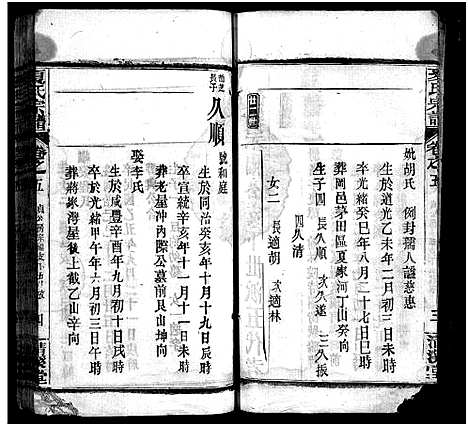 夏氏宗譜
卷之五
三
清溪堂
妣胡氏 例封孺人諡慈惠
生於道光乙未年二月初三日未時
卒光緒癸巳年八月二十七日未時
葬岡邑茅田區夏家河丁山癸向
生子四 長久順 次久遠 三久振
四久清
女二 長適胡 次適林
廿二世
長子
久順 號和庭
生於同治癸亥年十月十九日辰時
卒宣統辛亥年十一月十一日未時
葬老屋沖內際公墓前艮山坤向
娶李氏
生於咸豐辛酉年九月初十日戌時
卒於光緒甲午年六月初三日午時
葬蔣家灣屋後上截乙山辛向
夏氏宗譜
卷之五
四
清溪堂